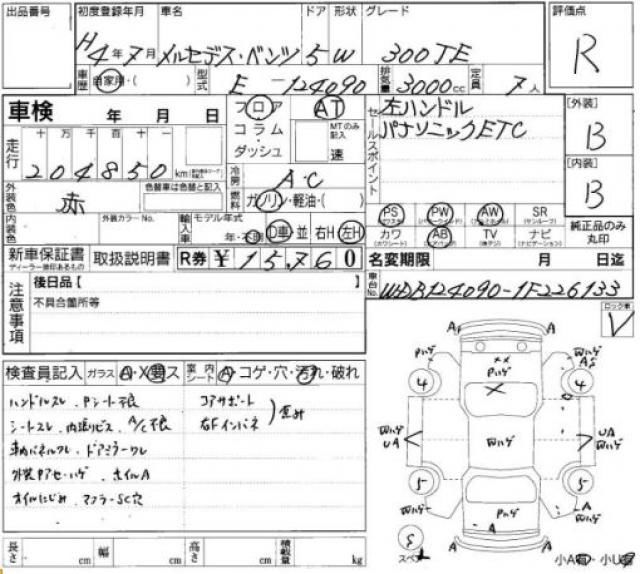 出品番号 初度登録年月 車名 ドア 形状 グレード 評価点
H4年7月 メルセデス・ベンツ 5 W 300TE R
車歴 自家用・( ) 型式 E-124090 排気量 3000cc 定員 7人
車検 年 月 日 フロア AT セールスポイント 左ハンドル [外装]
コラム MTのみ記入 パナソニックETC B
走行 十万千百十一 ダッシュ 速
204850 km 冷房 A・C [内装]
外装色 赤 色替車は色替と記入 燃料 ガソリン・軽油・( ) B
内装色 外装カラーNo. 輸入車 モデル年式 PS PW AW SR 純正品のみ丸印
年・不明 D車 並 右H 左H カワ AB TV ナビ
新車保証書 取扱説明書 R券 ¥15,760 名変期限 月 日迄
ディーラー捺印あるもの
注意事項 後日品【 】 車台No. WDB124090-1F226133
不具合箇所等 ロック車 V
検査員記入 ガラス A・X・ス 室内シート A・コゲ・穴・汚れ・破れ
ハンドルスレ、Pシート不良 コアサポート
シートスレ、内張りビス、A/C不良 右Fインパネ 歪み
車内パネルワレ、ドアミラーワレ
外装Pアセ・ハゲ ホイルA
オイルにじみ、マフラーSC穴
長さ cm 幅 cm 高さ cm 積載量 kg
A A
Pハゲ ×× 凹ハゲ A
4 × 4
凹ハゲ UA 凹ハゲ 凹ハゲ UA 凹ハゲ
5 5
凹ハゲ Pハゲ A 凹ハゲ
A
S スペア A A 小A・小U